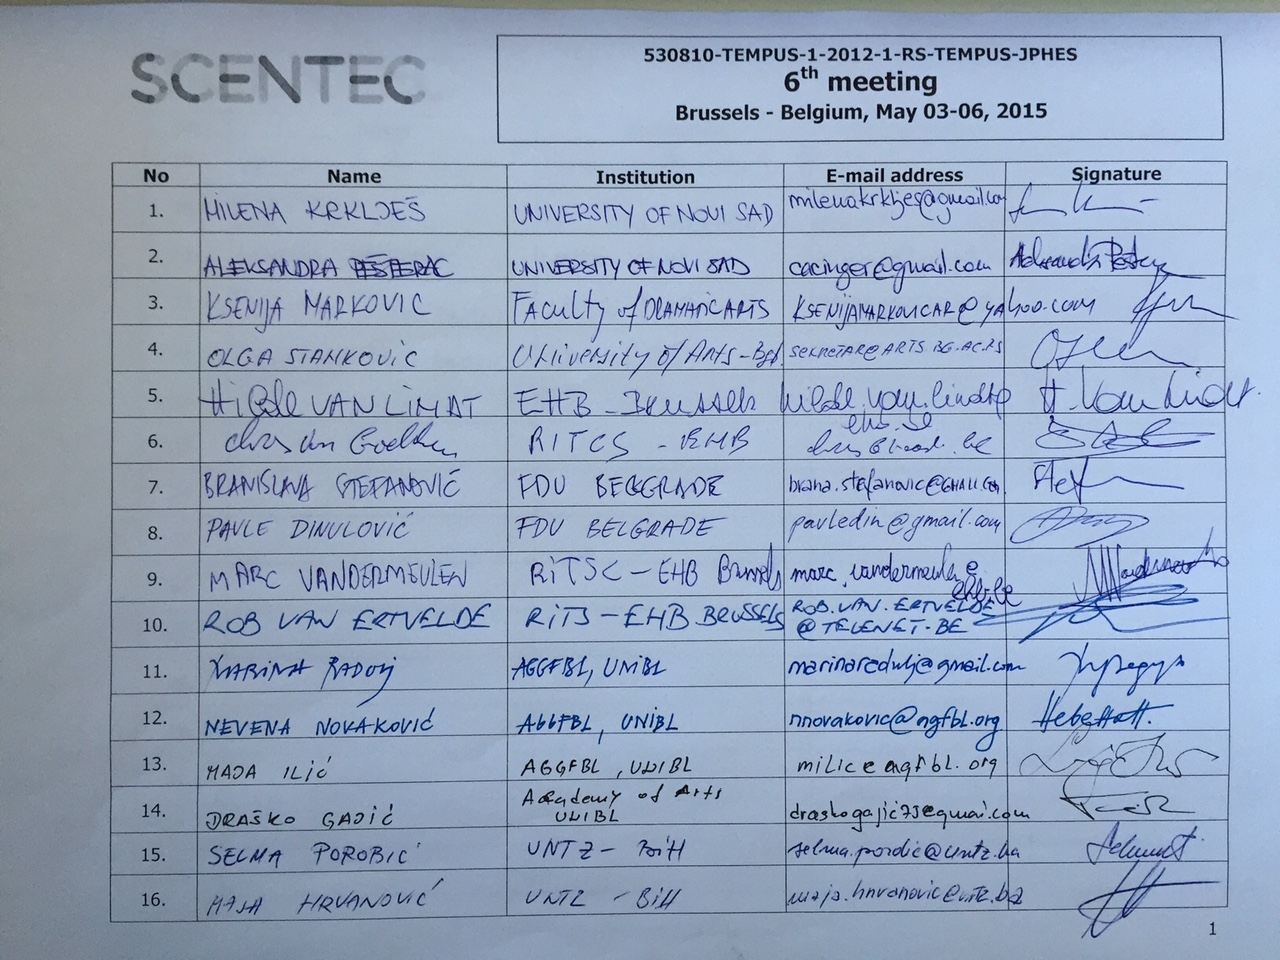 SCENTEC
530810-TEMPUS-1-2012-1-RS-TEMPUS-JPHES
6th meeting
Brussels - Belgium, May 03-06, 2015
No Name Institution E-mail address Signature
1. MILENA KRKLJEŠ UNIVERSITY OF NOVI SAD milenakrkljes@gmail.com
2. ALEKSANDRA PEŠTERAC UNIVERSITY OF NOVI SAD cacinger@gmail.com
3. KSENIJA MARKOVIC Faculty of DRAMATIC ARTS KSENIJAMARKOVICAR@YAHOO.COM
4. OLGA STANKOVIĆ University of Arts-Bgd SEKRETAR@ARTS.BG.AC.RS
5. VAN LINDT EHB - Brussels hilde.van.lindt@ H. Van Lindt
ehb.be
6. RITCS - EHB
7. BRANISLAVA STEFANOVIĆ FDU BEOGRADE brana.stefanovic@GMAIL.COM
8. PAVLE DINULOVIĆ FDU BELGRADE pavledin@gmail.com
9. MARC VANDERMEULEN RITSC - EHB Brussels marc.vandermeulen@
ehb.be
10. ROB VAN ERTVELDE RITS - EHB BRUSSELS ROB.VAN.ERTVELDE
@TELENET.BE
11. MARINA RADULJ AGGFBL, UNIBL marinaradulj@gmail.com
12. NEVENA NOVAKOVIĆ AGGFBL, UNIBL nnovakovic@agfbl.org
13. MAJA ILIĆ AGGFBL, UNIBL milic@agfbl.org
14. DRAŠKO GAJIĆ Academy of Arts
UNIBL draskogajic73@gmail.com
15. SELMA POROBIĆ UNTZ - BiH selma.porobic@untz.ba
16. MAJA HRVANOVIĆ UNTZ - BiH maja.hrvanovic@untz.ba
1